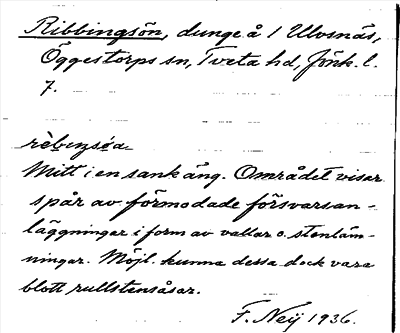 Ribbingsön, dunge å 1 Ulvsnäs,
Öggestorps sn, Tveta hd, Jönk. l.
7.
rèbeŋsøa
Mitt i en sank äng. Området visar
spår av förmodade försvarsan-
läggningar i form av vallar o. stenläm-
ningar. Möjl. kunna dessa dock vara
blott rullstensåsar.
F. Neij 1936.